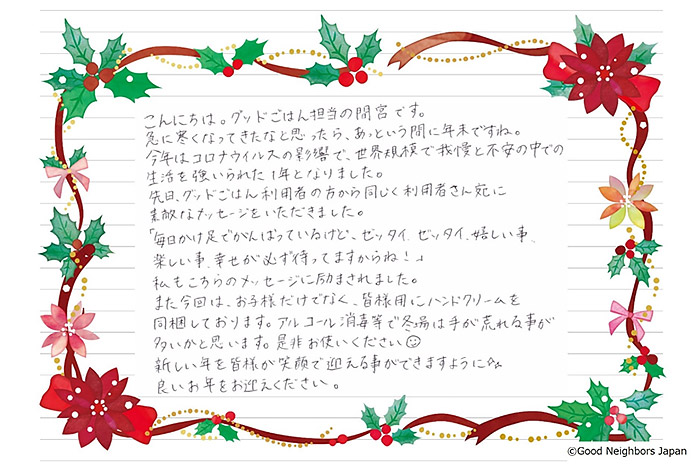 こんにちは。グッドごはん担当の間宮です。
急に寒くなってきたなと思ったら、あっという間に年末ですね。
今年はコロナウイルスの影響で、世界規模で我慢と不安の中での
生活を強いられた1年となりました。
先日、グッドごはん利用者の方から同じく利用者さん宛に
素敵なメッセージをいただきました。
「毎日かけ足でがんばっているけど、ゼッタイ、ゼッタイ、嬉しい事、
楽しい事、幸せが必ず待ってますからね!」
私もこちらのメッセージに励まされました。
また今回は、お子様だけでなく、皆様用にハンドクリームを
同梱しております。アルコール消毒等で冬場は手が荒れる事が
多いかと思います。是非お使いください☺
新しい年を皆様が笑顔で迎える事ができますように
良いお年をお迎えください。
©Good Neighbors Japan